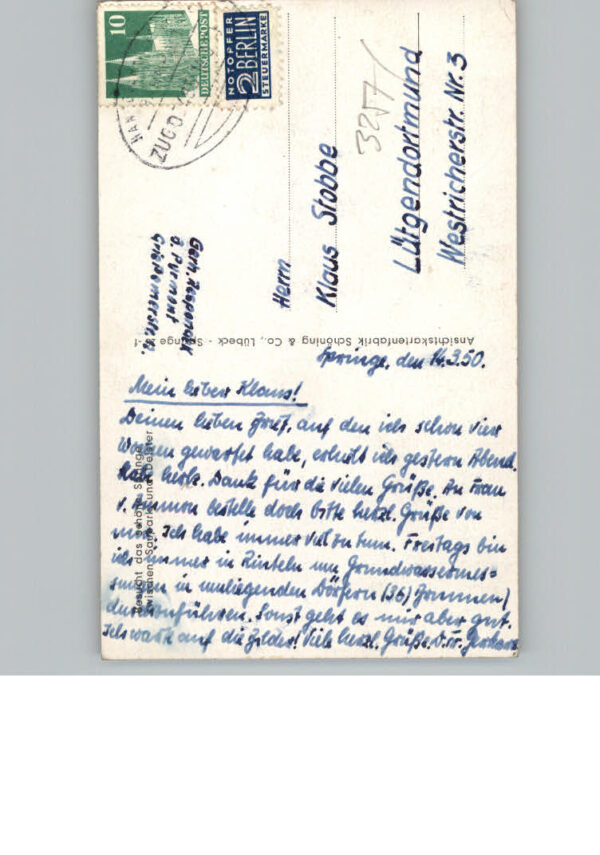 10
DEUTSCHE POST
NOTOPFER
2 BERLIN
STEUERMARKE
ZUG 0
3257/
Herrn
Klaus Stobbe
Lütgendortmund
Westricherstr. Nr. 3
Gerh.
b. Pyrmont
Ansichtskartenfabrik Schöning & Co., Lübeck - Springe
Besucht das schöne Springe
zwischen Saupark und Deister
Springe, den 14.3.50.
Mein lieber Klaus!
Deinen lieben Brief, auf den ich schon vier
Wochen gewartet habe, erhielt ich gestern Abend.
Hab herzl. Dank für die vielen Grüße. An Frau
v. Ammon bestelle doch bitte herzl. Grüße von
mir. Ich habe immer viel zu tun. Freitags bin
ich immer in Rinteln um Grundwassermes-
sungen in umliegenden Dörfern (36) Brunnen)
durchzuführen. Sonst geht es mir aber gut.
Ich warte auf die Bilder! Viele herzl. Grüße Gerhard